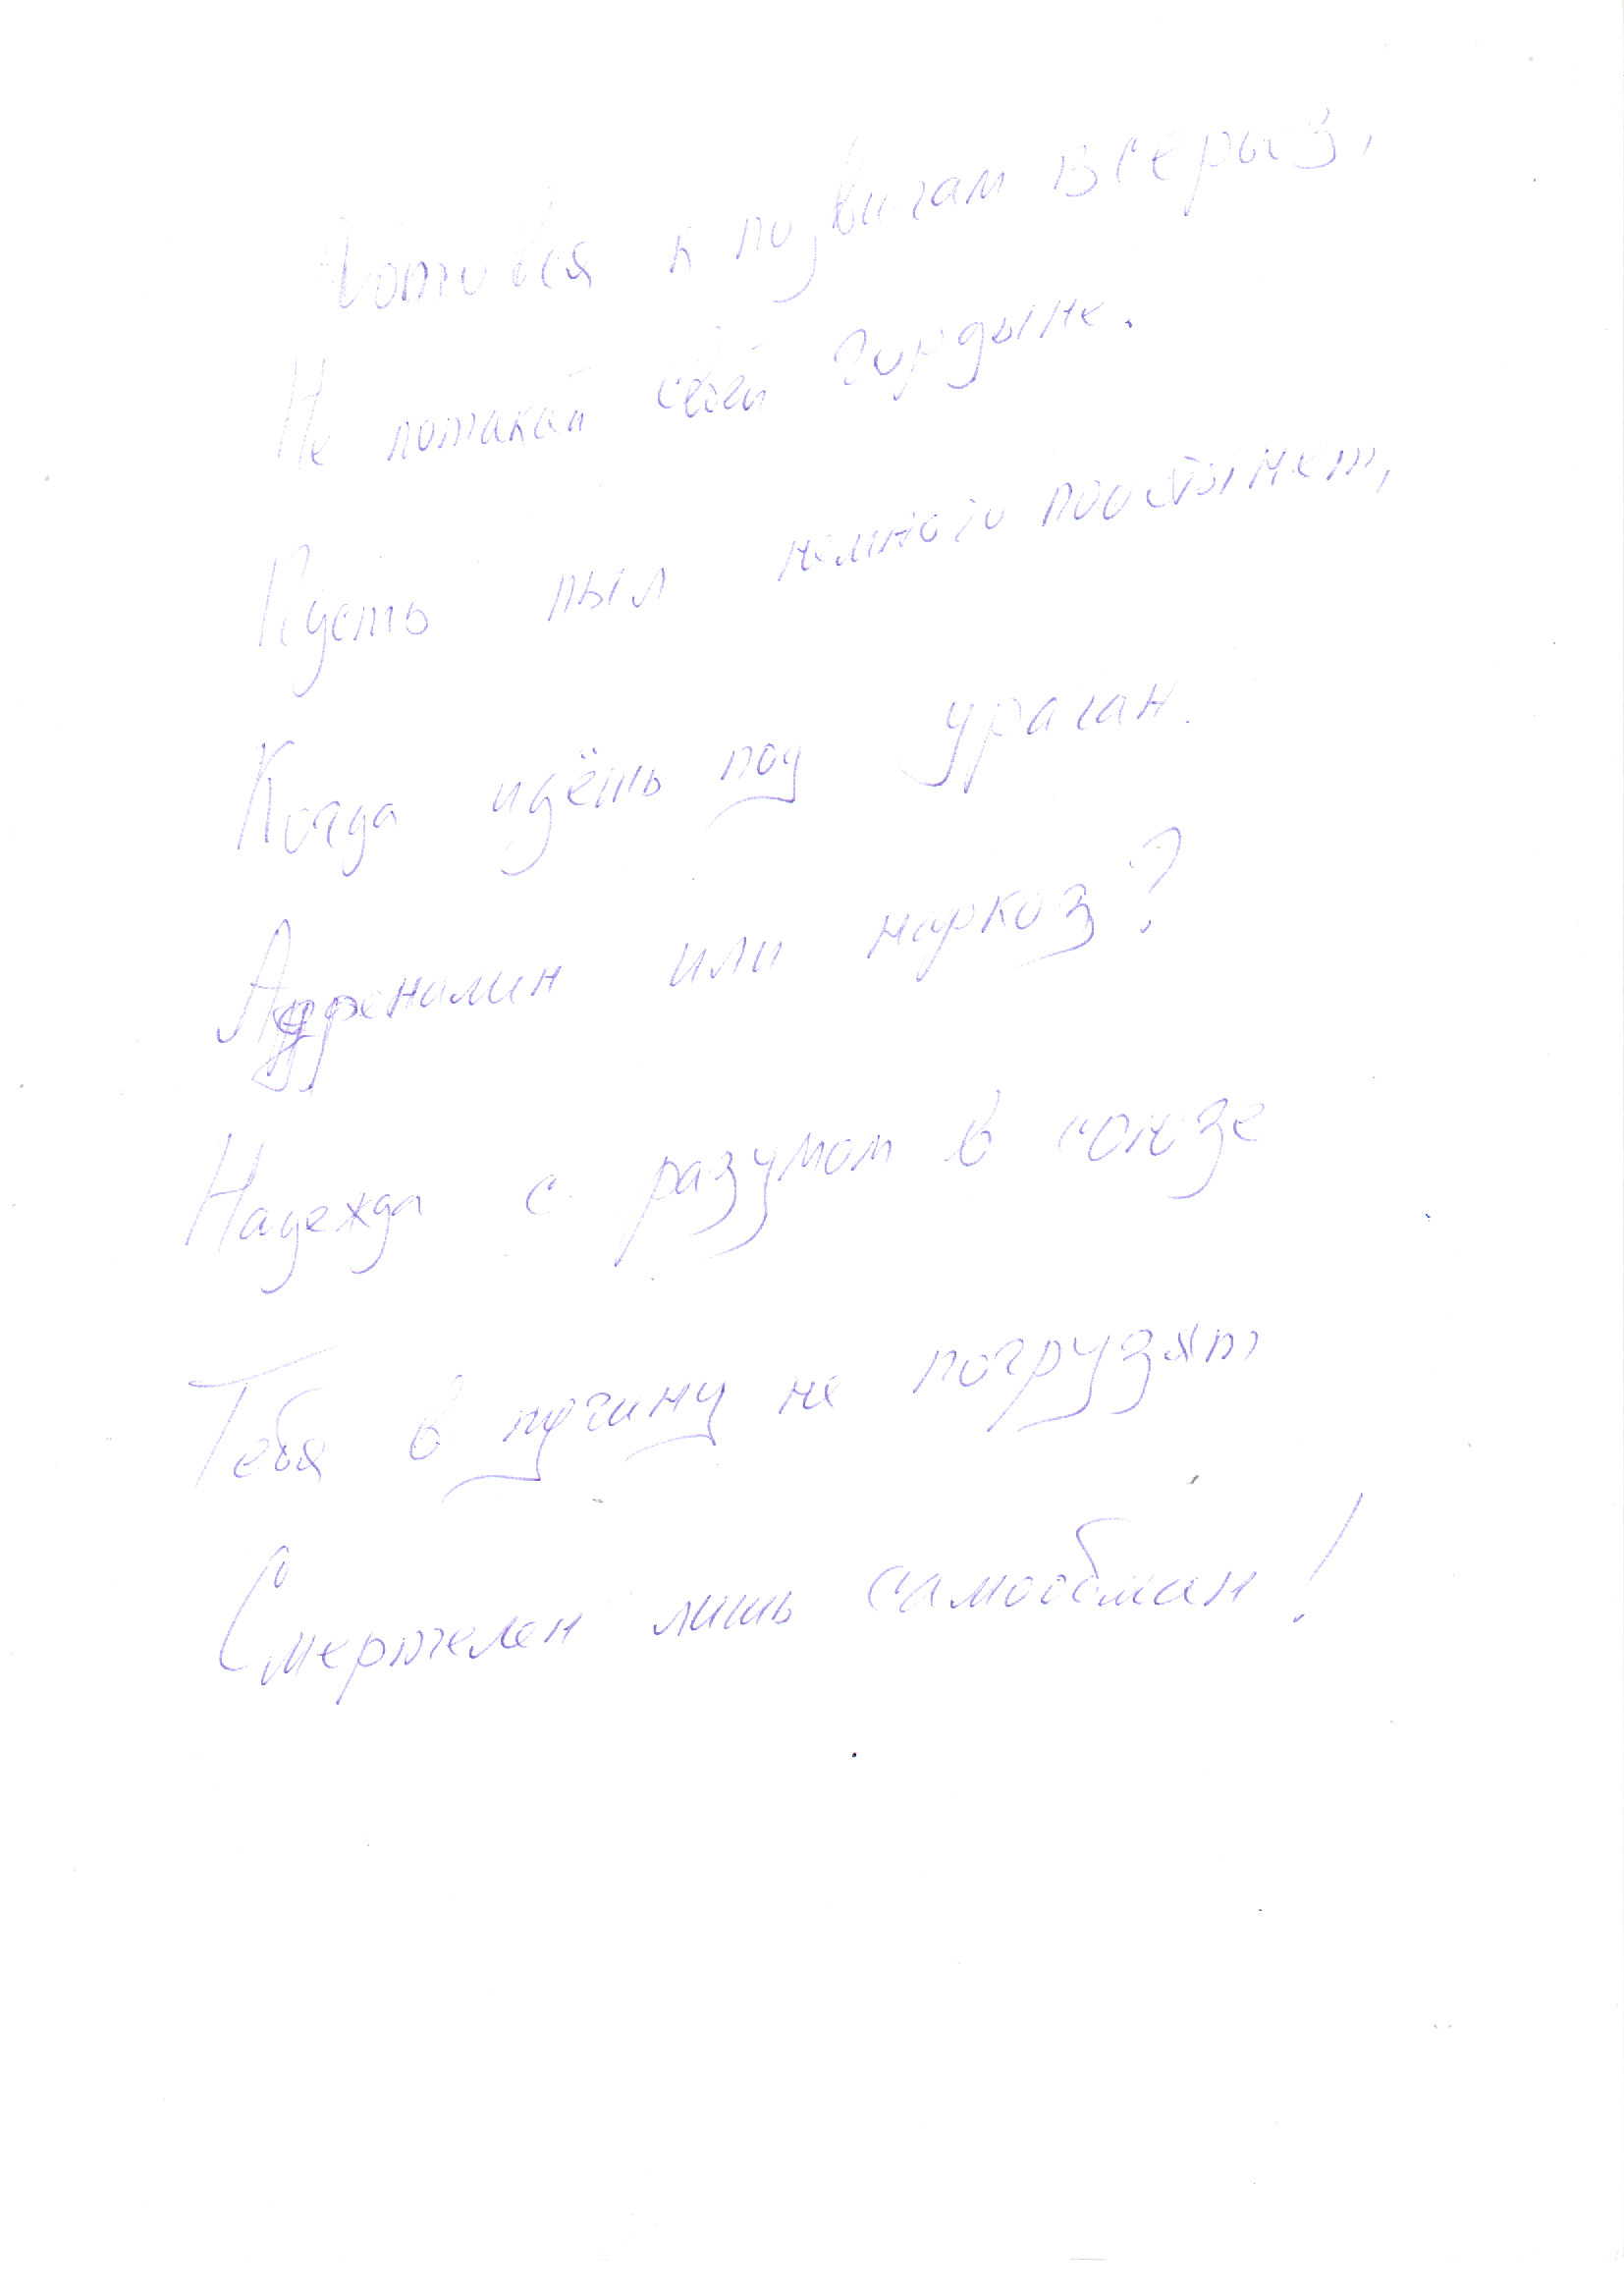 Готовься к подвигам всерьёз,
Не потакай своей гордыне.
Пусть пыл немного поостынет,
Когда идёшь под ураган.
Адреналин или наркоз?
Надежда с разумом в союзе
Тебя в пучину не погрузят
Смертелен лишь самообман!